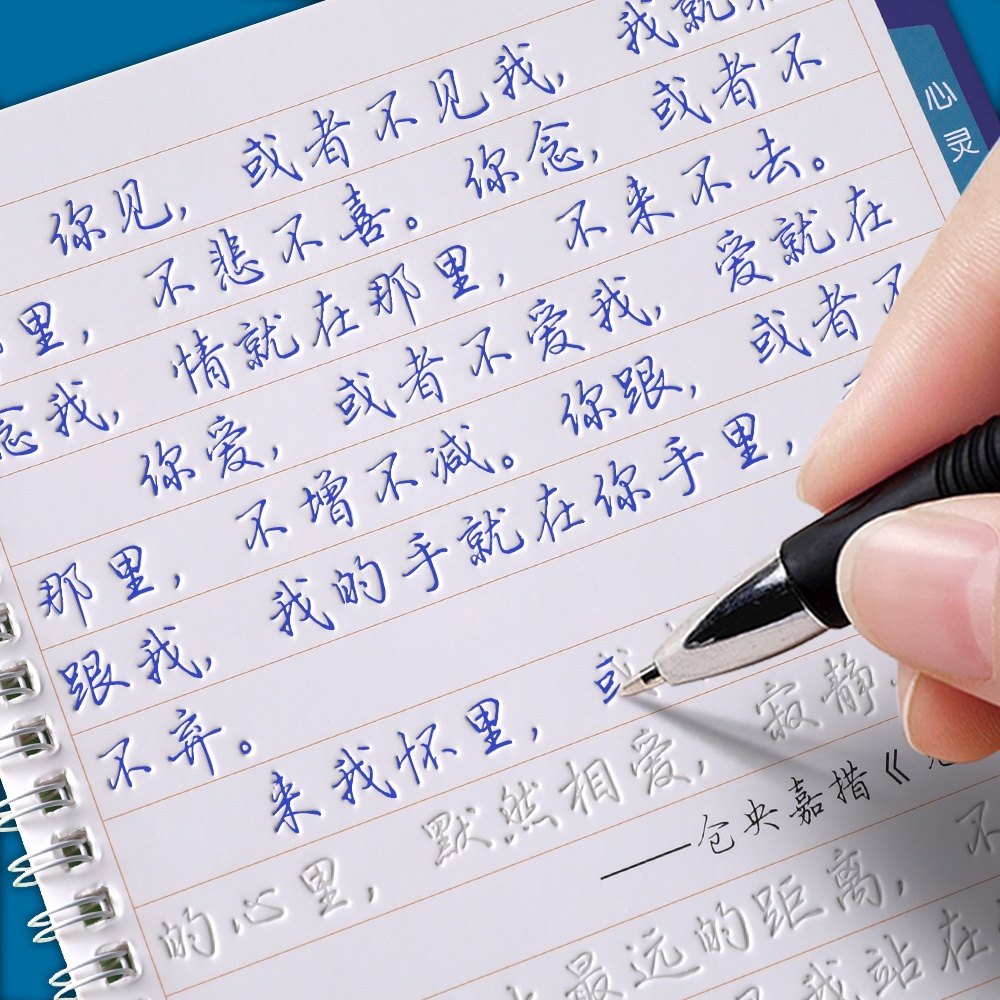 心灵
你见,或者不见我,我就在
里,不悲不喜。你念,或者不
念我,情就在那里,不来不去。
你爱,或者不爱我,爱就在
那里,不增不减。你跟,或者不
跟我,我的手就在你手里,
不弃。
来我怀里,或
的心里,默然相爱,寂静
——仓央嘉措《
最远的距离,不
我站在